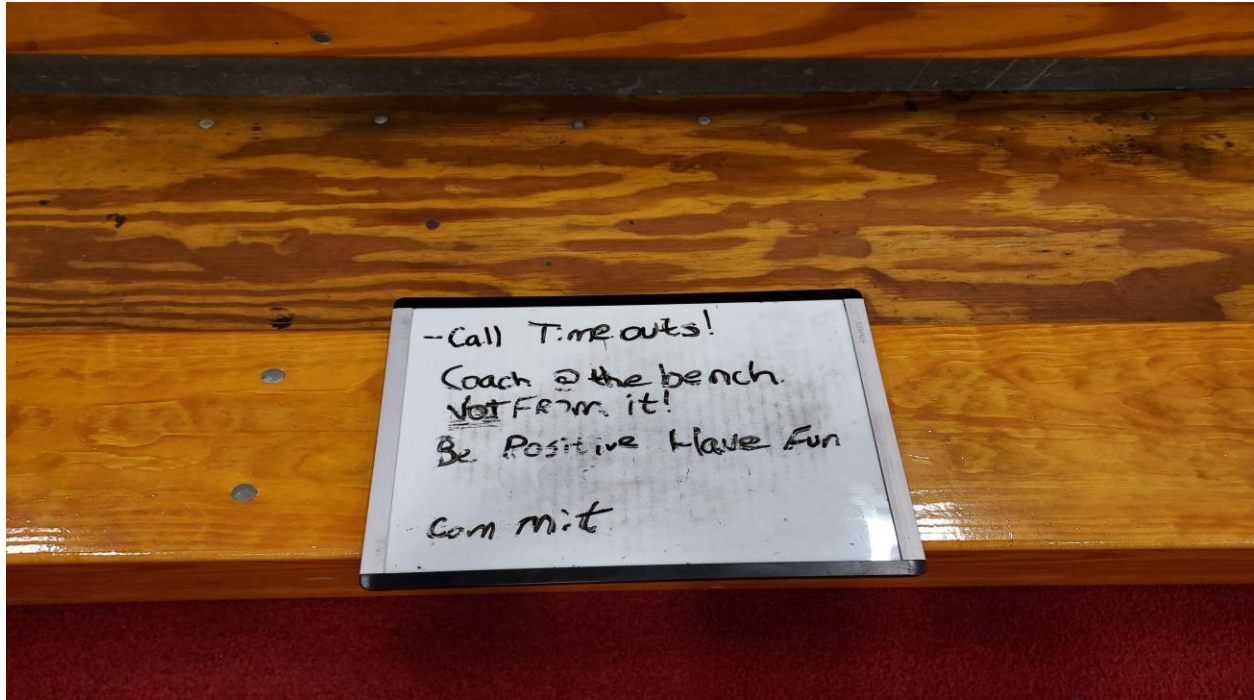 -Call Timeouts!
Coach @ the bench.
NOT From it!
Be Positive Have Fun
Commit